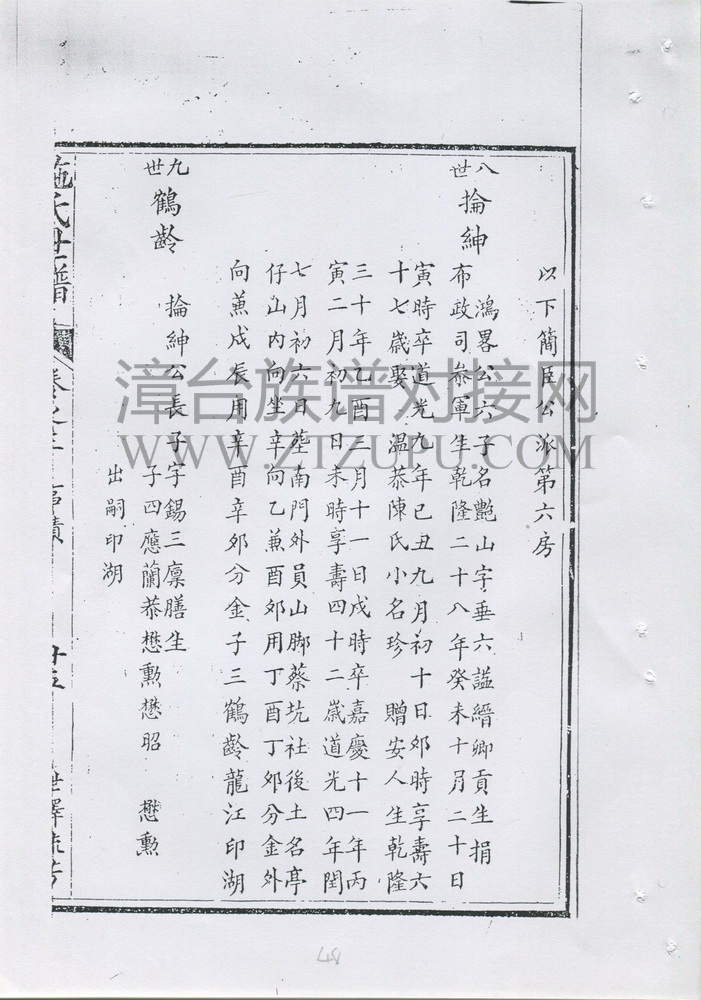 以下簡臣公派第六房
八世
掄紳
鴻畧公六子名艷山字垂六諡縉卿貢生捐
布政司叅軍生乾隆二十八年癸未十月二十日
寅時卒道光九年己丑九月初十日卯時享壽六
十七歲娶 溫恭陳氏小名珍 贈安人生乾隆
三十年乙酉三月十一日戌時卒嘉慶十一年丙
寅二月初九日未時享壽四十二歲道光四年閏
七月初六日塟南門外員山脚蔡坑社後土名亭
仔山內向坐辛向乙兼酉卯用丁酉丁卯分金外
向兼戍辰用辛酉辛卯分金子三鶴齡龍江印湖
九世
鶴齡
掄紳公長子字錫三廩膳生
子四應蘭恭懋勲懋昭 懋勲
出嗣印湖
施氏世譜
卷之
事蹟
漳台族谱对接网
WWW.ZTZUPU.COM
48